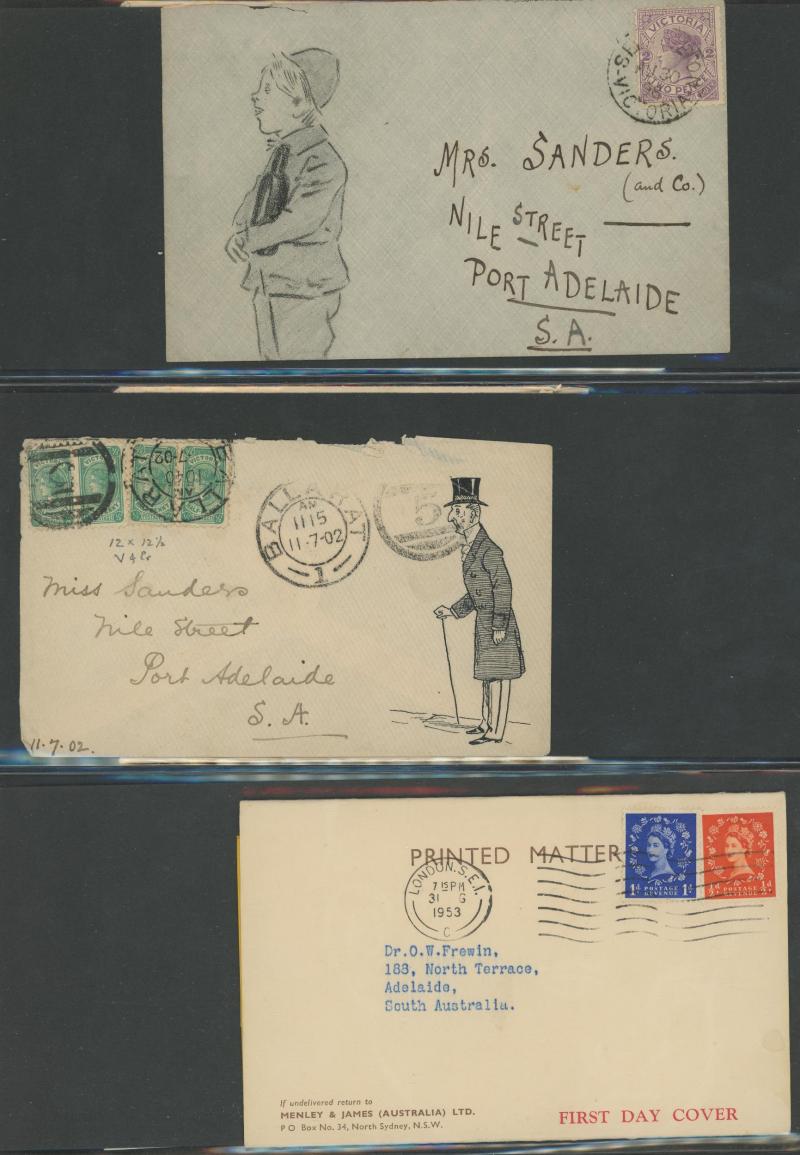 VICTORIA
2 2
VICTORIA
30
MRS. SANDERS.
(and Co.)
NILE STREET
PORT ADELAIDE
S.A.
BALLARAT
AM
1040
7-02
BALLARAT
AM
1115
11-7-02
1
5
12 x 12½
Miss Sanders
Nile Street
Port Adelaide
S.A.
11.7.02.
PRINTED MATTER
LONDON.S.E.1.
7 15 PM
31 G
1953
C
1d POSTAGE REVENUE 1d
½d POSTAGE REVENUE ½d
Dr.O.W.Frewin,
183, North Terrace,
Adelaide,
South Australia.
If undelivered return to
MENLEY & JAMES (AUSTRALIA) LTD.
P O Box No. 34, North Sydney, N.S.W.
FIRST DAY COVER